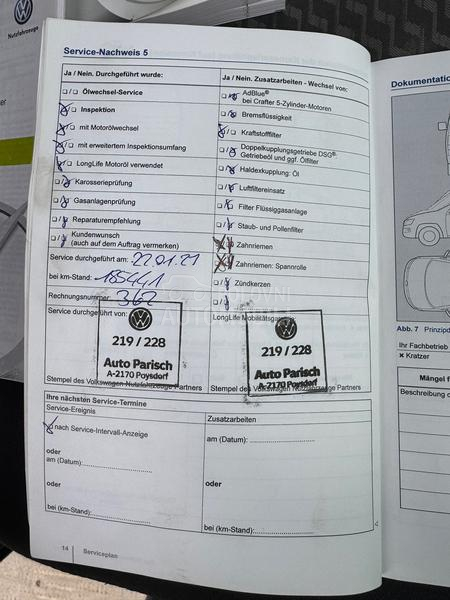 Nutzfahrzeuge
Service-Nachweis 5
Ja / Nein. Durchgeführt wurde:
Ölwechsel-Service
Inspektion
mit Motorölwechsel
mit erweitertem Inspektionsumfang
LongLife Motoröl verwendet
Karosserieprüfung
Gasanlagenprüfung
Reparaturempfehlung
Kundenwunsch
(auch auf dem Auftrag vermerken)
Service durchgeführt am: 22.01.21
bei km-Stand: 185441
Rechnungsnummer: 362
Service durchgeführt von:
219 / 228
Auto Parisch
A-2170 Poysdorf
Stempel des Volkswagen Nutzfahrzeuge Partners
Ja / Nein. Zusatzarbeiten - Wechsel von:
AdBlue®
bei Crafter 5-Zylinder-Motoren
Bremsflüssigkeit
Kraftstofffilter
Doppelkupplungsgetriebe DSG®:
Getriebeöl und ggf. Ölfilter
Haldexkupplung: Öl
Luftfiltereinsatz
Filter Flüssiggasanlage
Staub- und Pollenfilter
Zahnriemen
Zahnriemen: Spannrolle
Zündkerzen
LongLife Mobilitätsgarantie
219 / 228
Auto Parisch
A-2170 Poysdorf
Stempel des Volkswagen Nutzfahrzeuge Partners
Ihre nächsten Service-Termine
Service-Ereignis
nach Service-Intervall-Anzeige
oder
am (Datum):
oder
bei (km-Stand):
Zusatzarbeiten
am (Datum):
oder
bei (km-Stand):
14 Serviceplan
Dokumentatio
Abb. 7 Prinzipd
Ihr Fachbetrieb
× Kratzer
Mängel f
Beschreibung d